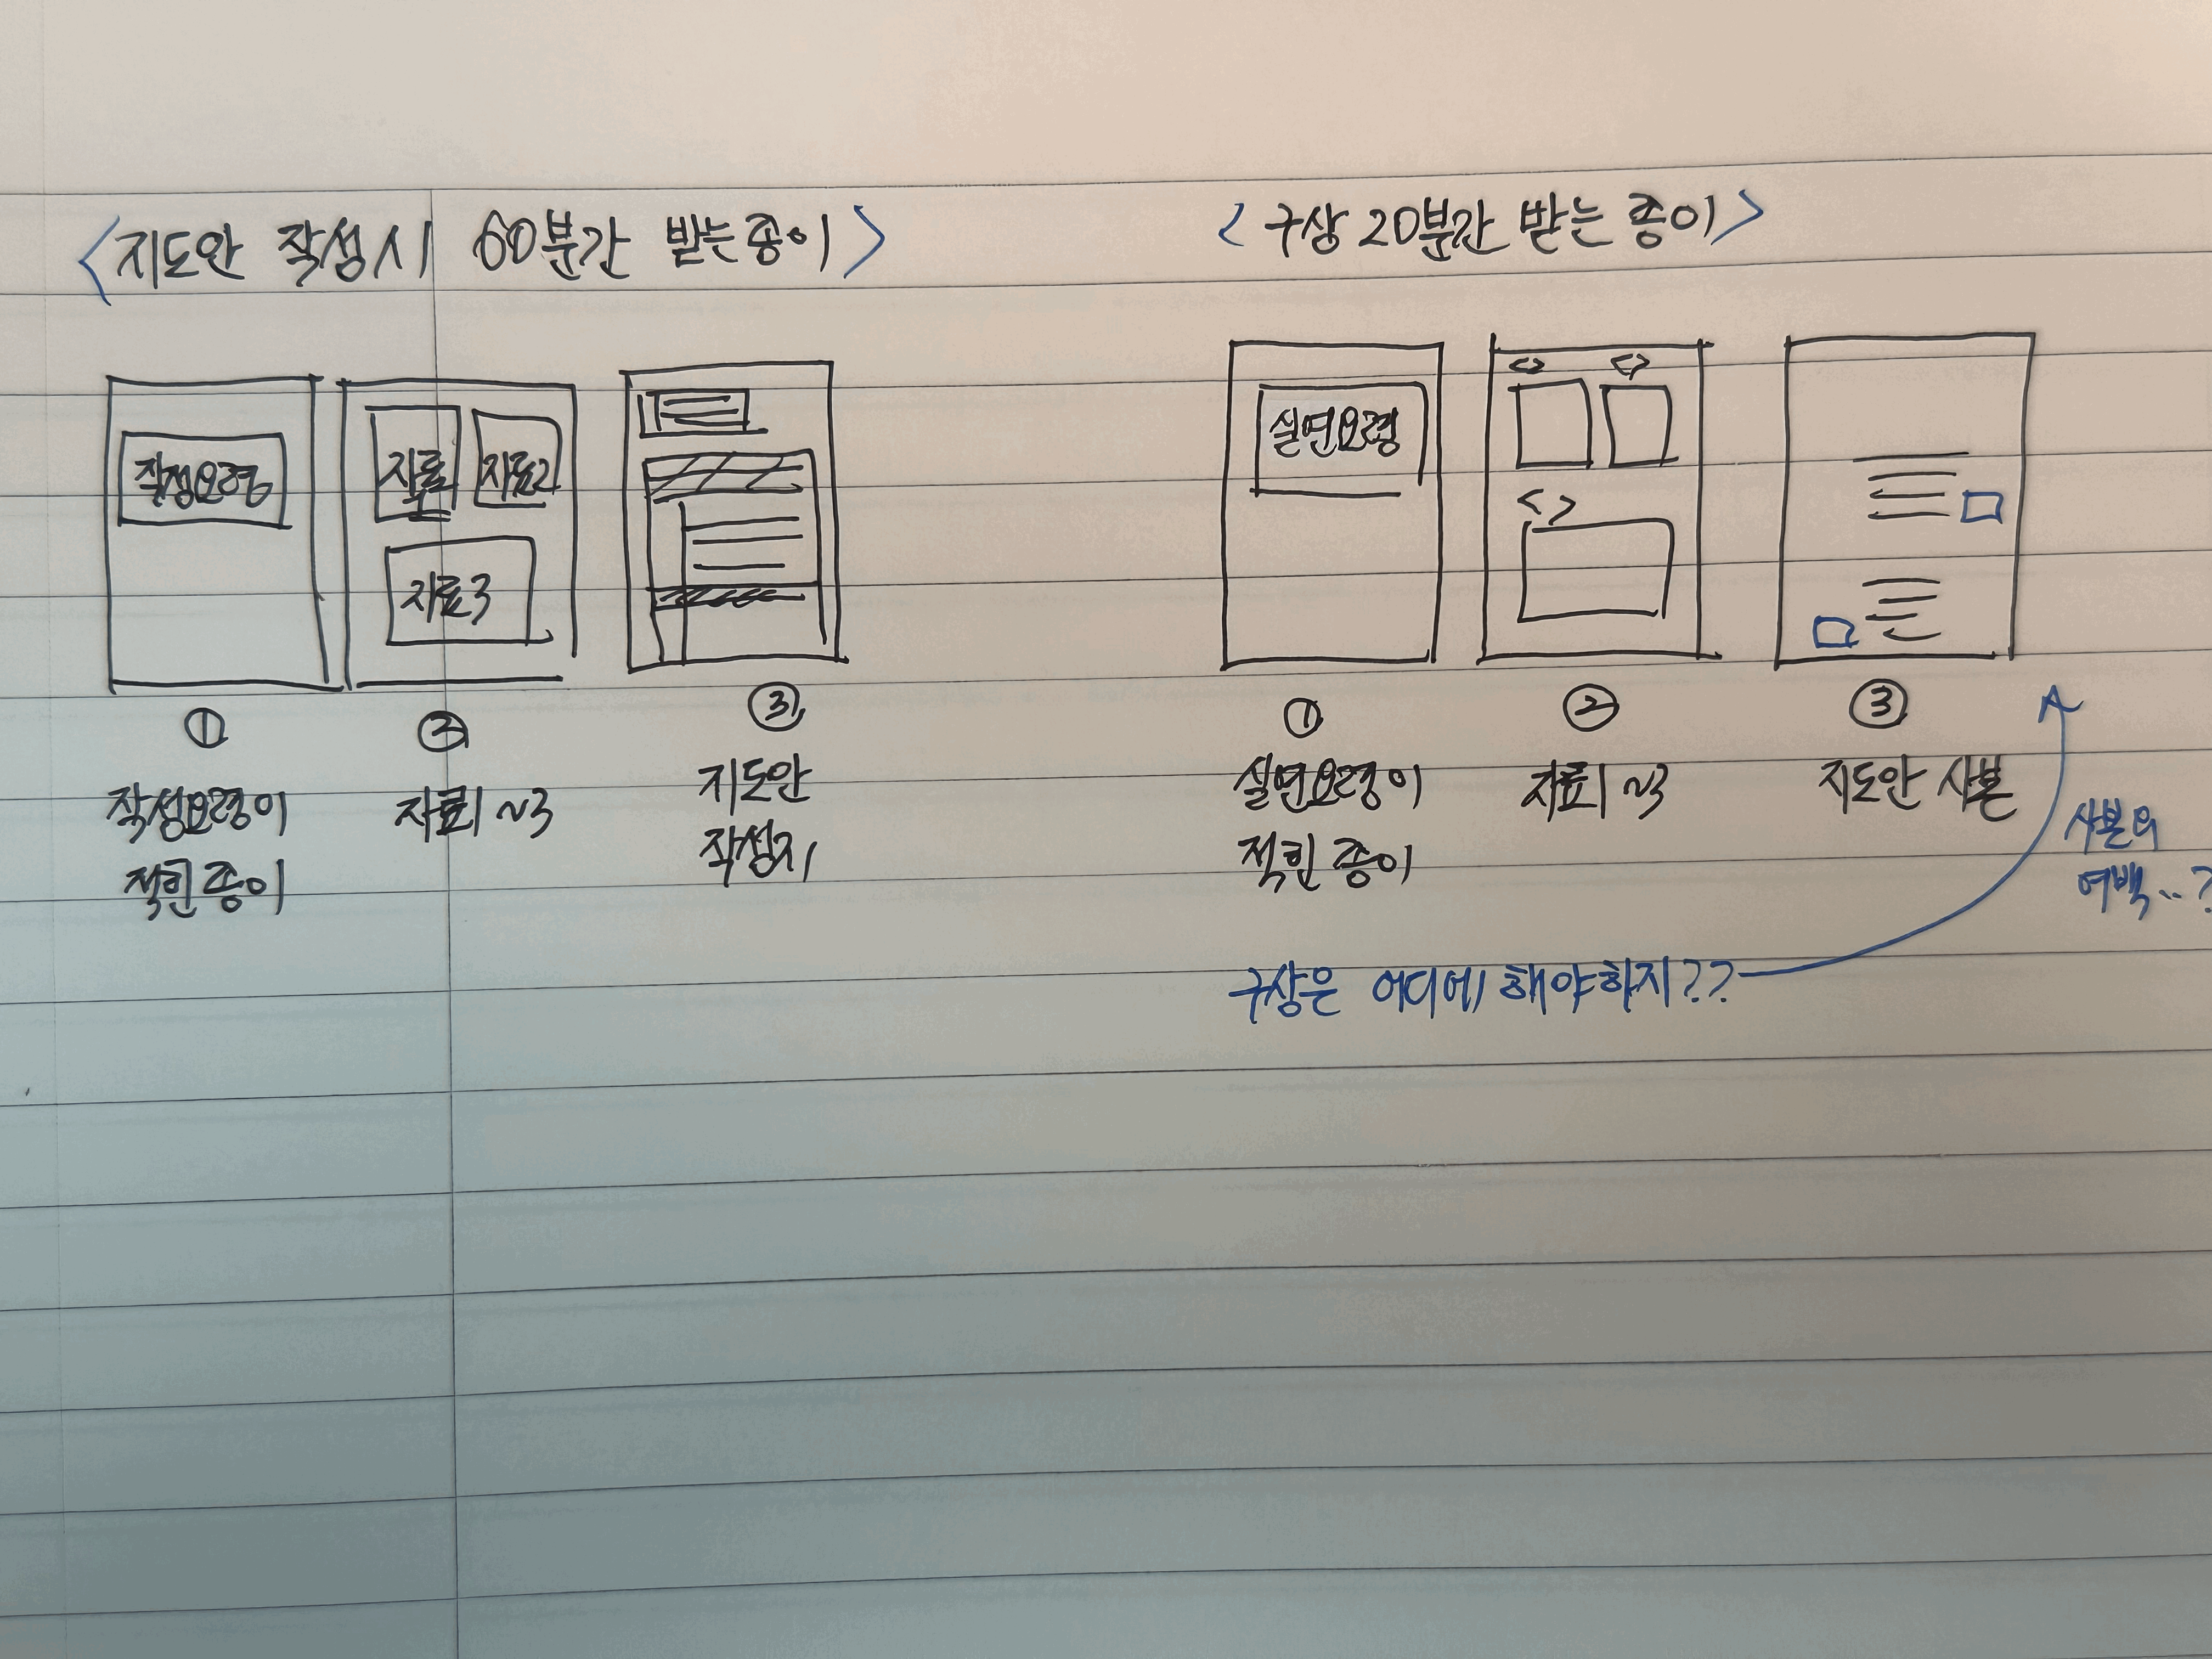 <지도안 작성시 60분간 받는종이>
작성요령
자료1
자료2
자료3
①
②
③
작성요령이
적힌 종이
자료1~3
지도안
작성지
<구상 20분간 받는 종이>
실연요령
< >
< >
< >
①
②
③
실연요령이
적힌 종이
자료1~3
지도안 사본
사본의
여백..?
구상은 어디에 해야하지??